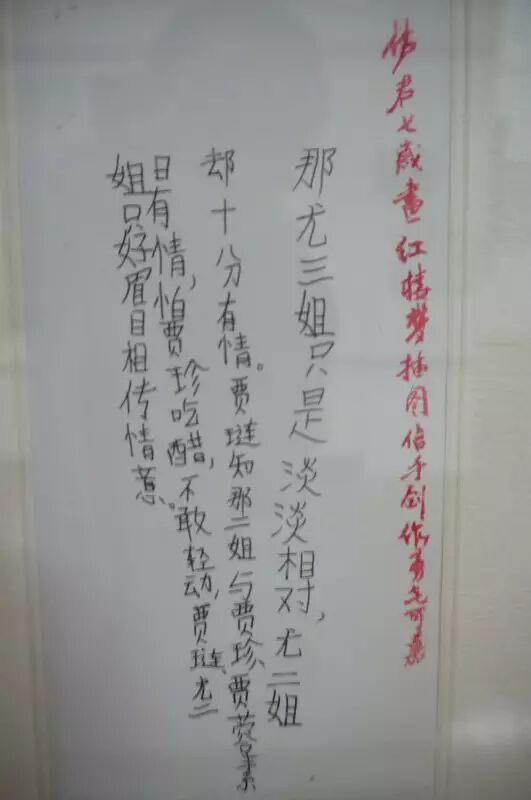 伟君七歲畫红楼梦插图信手创作勇气可嘉
那尤三姐只是淡淡相对,尤二姐
却十分有情。贾琏知那二姐与贾珍、贾蓉等素
日有情,怕贾珍吃醋,不敢轻动,贾琏、尤二
姐只好眉目相传情意。